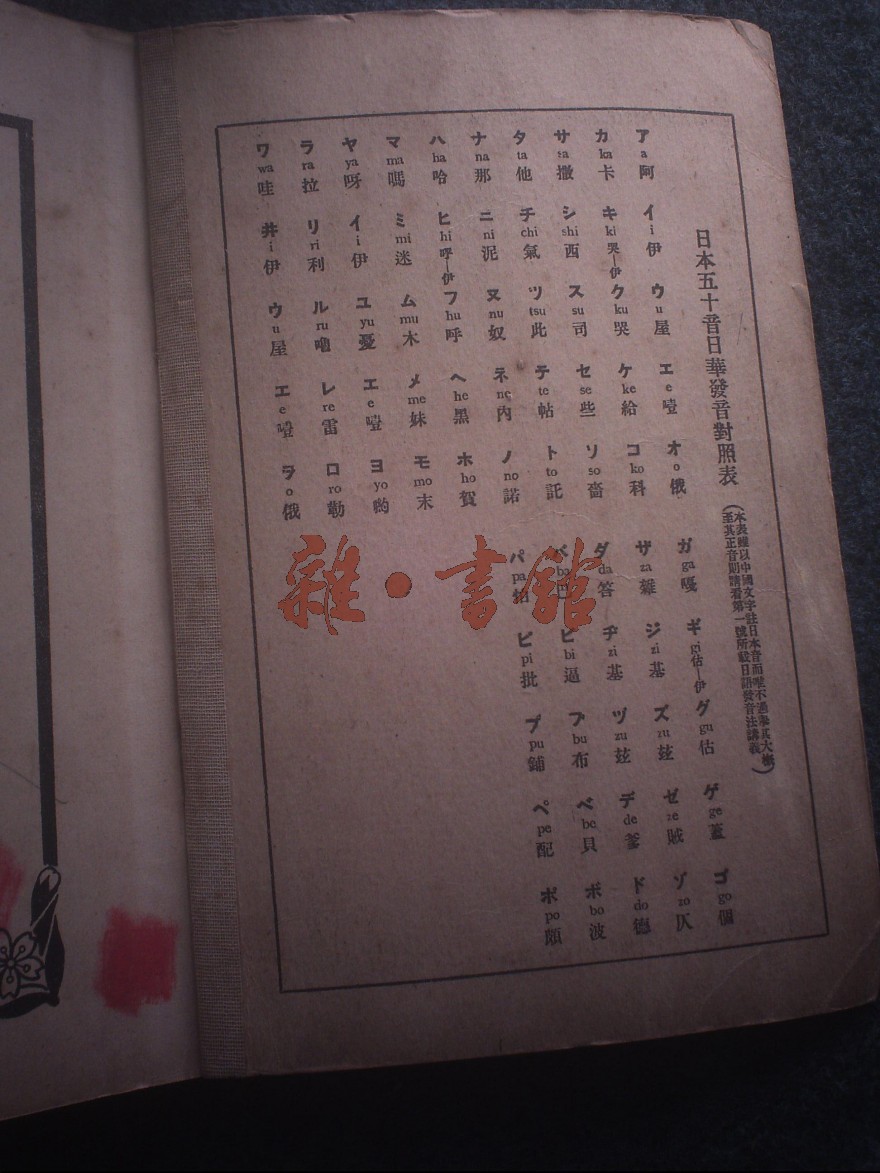 日本五十音日華發音對照表
（本表雖以中國文字註日本音而惟不過舉其大概
至其正音則請看第一號所載日語發音法講義）
ア a 阿 イ i 伊 ウ u 屋 エ e 噎 オ o 俄
カ ka 卡 キ ki 哭—伊 ク ku 哭 ケ ke 給 コ ko 科
サ sa 撒 シ shi 西 ス su 司 セ se 些 ソ so 嗇
タ ta 他 チ chi 氣 ツ tsu 此 テ te 帖 ト to 託
ナ na 那 ニ ni 泥 ヌ nu 奴 ネ ne 內 ノ no 諾
ハ ha 哈 ヒ hi 呼—伊 フ hu 呼 ヘ he 黑 ホ ho 賀
マ ma 嗎 ミ mi 迷 ム mu 木 メ me 妹 モ mo 末
ヤ ya 呀 イ i 伊 ユ yu 憂 エ e 噎 ヨ yo 喲
ラ ra 拉 リ ri 利 ル ru 嚕 レ re 雷 ロ ro 勒
ワ wa 哇 井 i 伊 ウ u 屋 エ e 噎 ヲ o 俄
ガ ga 嘎 ギ gi 估—伊 グ gu 估 ゲ ge 蓋 ゴ go 個
ザ za 雜 ジ zi 基 ズ zu 玆 ゼ ze 賊 ゾ zo 仄
ダ da 答 ヂ zi 基 ヅ zu 玆 デ de 爹 ド do 德
バ ba 巴 ビ bi 逼 ブ bu 布 ベ be 貝 ボ bo 波
パ pa 怕 ピ pi 批 プ pu 鋪 ペ pe 配 ポ po 頗
雜·書館